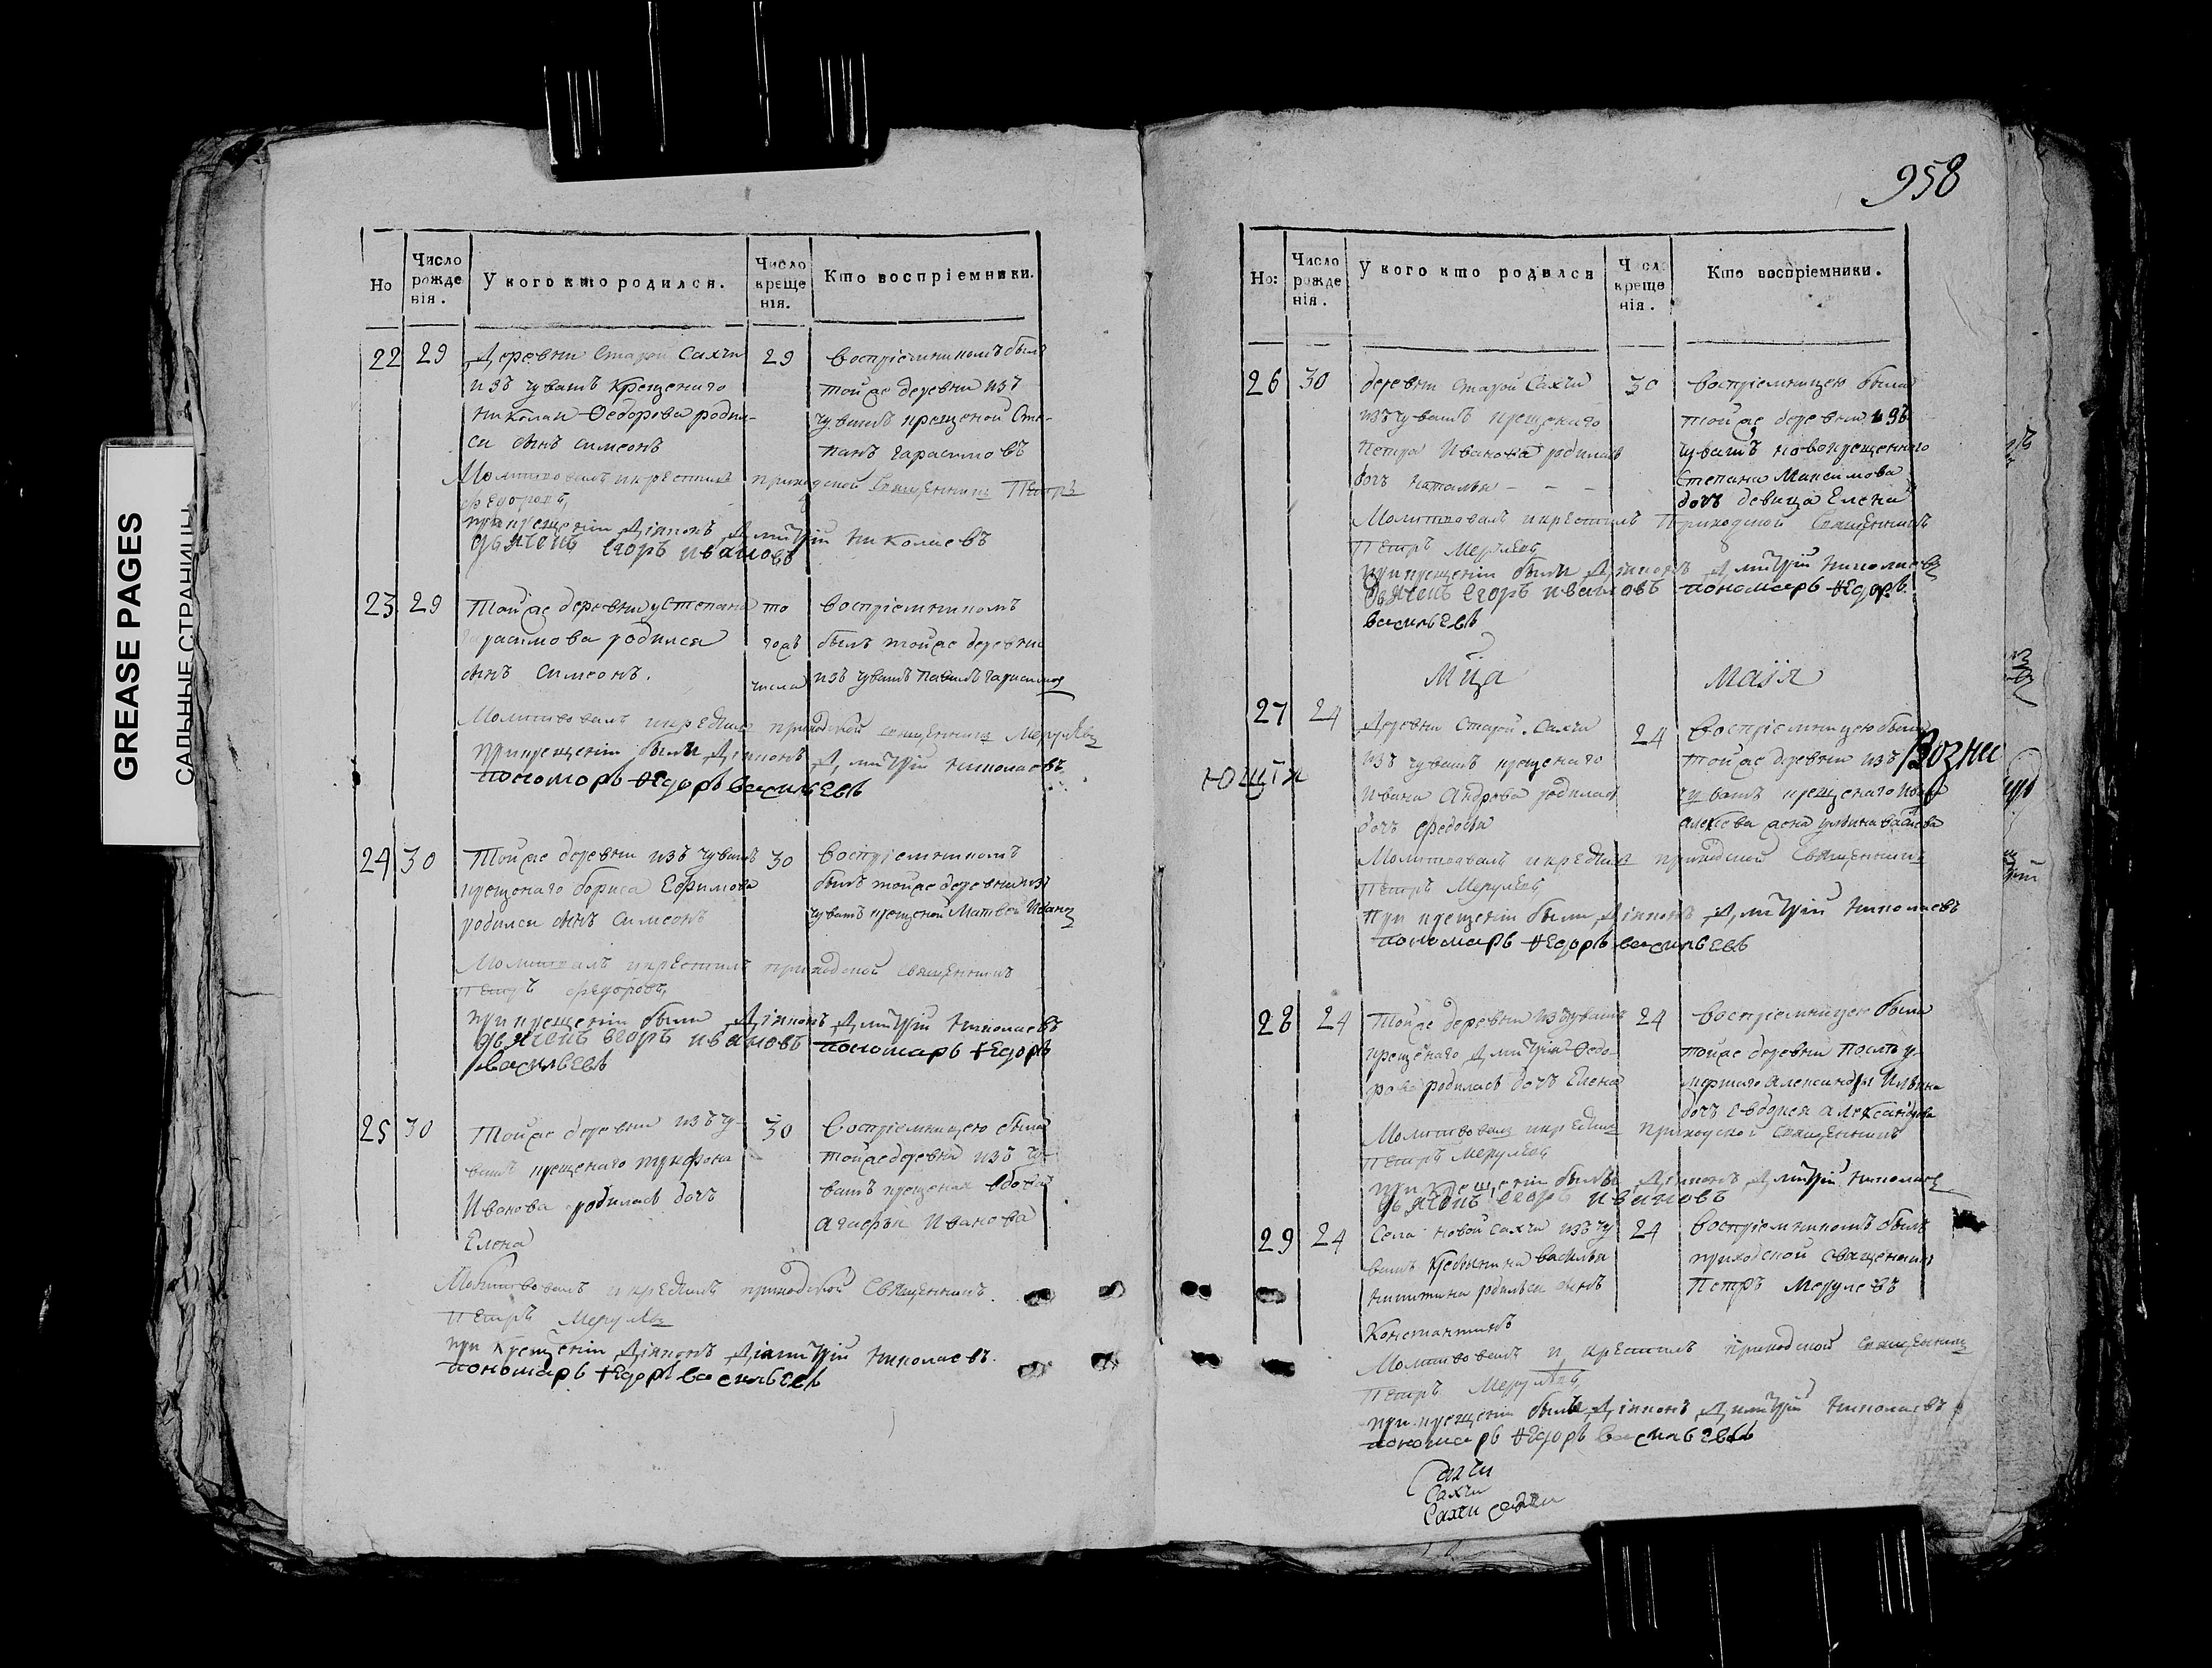 GREASE PAGES
САЛЬНЫЕ СТРАНИЦЫ
Но
Число рожде нія.
У кого кто родился.
Число креще нія.
Кто воспріемники.
22 29
Деревни Старой Сахчи
изъ чувашъ крещенаго
Николая Ѳедорова роди-
ся сынъ Симеонъ
29
воспріемникомъ былъ
тойже деревни изъ
чувашъ крещеной Сте-
панъ Гарасимовъ
Молитвовалъ и крестилъ приходской священникъ Петръ
Федоровъ
при крещеніи Діяконъ Дмитрій Николаевъ
дьячекъ Егоръ Ивановъ
23 29
Тойже деревни у Степана
Гарасимова родился
сынъ Симеонъ.
то
гожъ
числа
воспріемникомъ
былъ тойже деревни
изъ чувашъ Павелъ Гарасимов
Молитвовалъ и крестилъ приходской священникъ
при крещеніи были Діяконъ Дмитрій Николаевъ
пономарь Ѳедоръ Васильевъ
24 30
Тойже деревни изъ чувашъ
крещенаго Бориса Ефимова
родился сынъ Симеонъ
30
воспріемникомъ
былъ тойже деревни изъ
чувашъ крещеной Матвей Иванов
Молитвовалъ и крестилъ приходской священникъ
Петръ Федоровъ
при крещеніи были Діяконъ Дмитрій Николаевъ
дьячекъ Егоръ Ивановъ пономарь Ѳедоръ
Васильевъ
25 30
Тойже деревни изъ чу-
вашъ крещенаго Трифона
Иванова родилась дочь
Елена
30
воспріемницею была
тойже деревни изъ чу-
вашъ крещеная вдова
Агафья Иванова
Молитвовалъ и крестилъ приходской священникъ
Петръ
при Крещеніи Діяконъ Діамитрій Николаевъ.
пономарь Ѳедоръ Васильевъ
958
Но:
Число рожде нія.
У кого кто родился
Числ креще нія.
Кто воспріемники.
26 30
деревни Старой Сахчи
изъ чувашъ крещенаго
Петра Иванова родилась
дочь Наталья - - -
30
воспріемницею была
тойже деревни изъ
чувашъ новокрещеннаго
Степана Максимова
дочь девица Елена
Молитвовалъ и крестилъ Приходской священникъ
Петръ Мерулевъ
при крещеніи были Діяконъ Дмитрій Николаевъ
дьячекъ Егоръ Ивановъ пономарь Ѳедоръ
Васильевъ
Мца Маія
27 24
Деревни Старой Сахчи
изъ чувашъ крещенаго
Ивана Андрева родилась
дочь Федосья
24
Воспріемницею была
тойже деревни изъ
чувашъ крещенаго
Алексева жена
Молитвовалъ и крестилъ приходской священникъ
Петръ Мерулевъ
При крещеніи были Діяконъ Дмитрій Николаевъ
пономарь Ѳедоръ Васильевъ
28 24
Тойже деревни изъ чувашъ
крещенаго Дмитрія Ѳедо-
рова родилась дочь Елена
24
воспріемницею была
тойже деревни После у-
мершаго Александра Ильина
дочь Евдокея Александрова
Молитвовалъ и крестилъ приходской священникъ
Петръ Мерулевъ
при крещеніи были Діяконъ Дмитрій Николаевъ
дьячекъ Егоръ Ивановъ
29 24
Села Новой Сахчи изъ чу
вашъ Василья
Никитина родился сынъ
Константинъ
24
воспріемникомъ былъ
приходской священникъ
Петръ Мерулевъ
Молитвовалъ и крестилъ приходской священник
Петръ Мерулевъ
при крещеніи были Діяконъ Дмитрій Николаевъ
пономарь Ѳедоръ Васильевъ
Сахчи
Сахчи
Сахчи